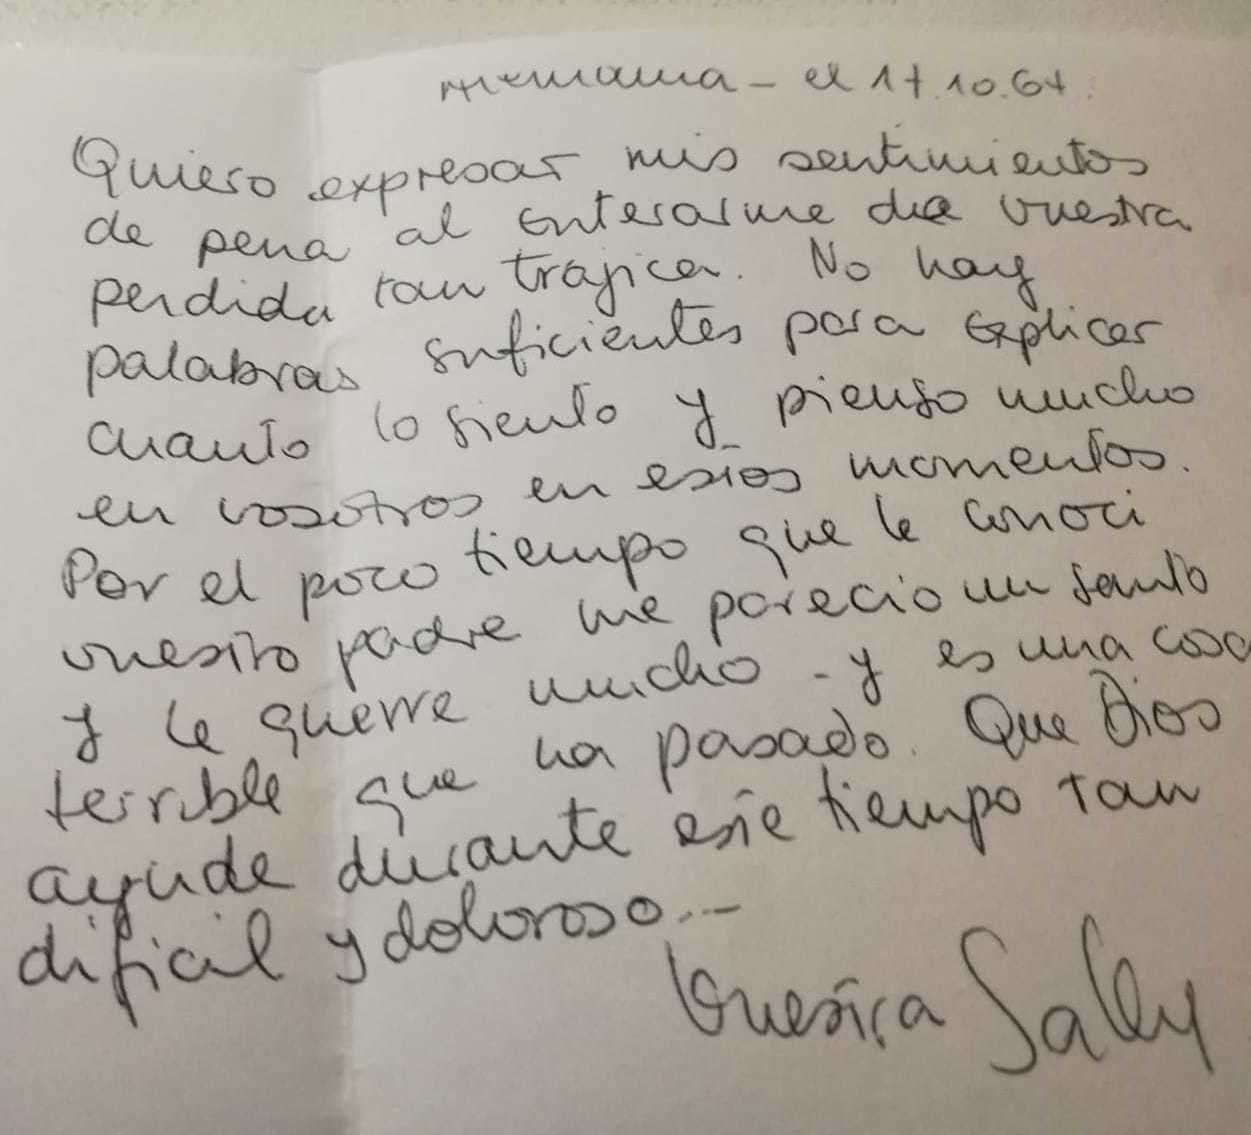 Alemania - el 17.10.67
Quiero expresar mis sentimientos
de pena al enterarme de vuestra
perdida tan trajica. No hay
palabras suficientes para explicar
cuanto lo siento y pienso mucho
en vosotros en estos momentos.
Por el poco tiempo que le conoci
vuestro padre me parecio un santo
y le querre mucho - y es una cosa
terrible que ha pasado. Que Dios
ayude durante este tiempo tan
dificial y doloroso...-
Vuestra Sally